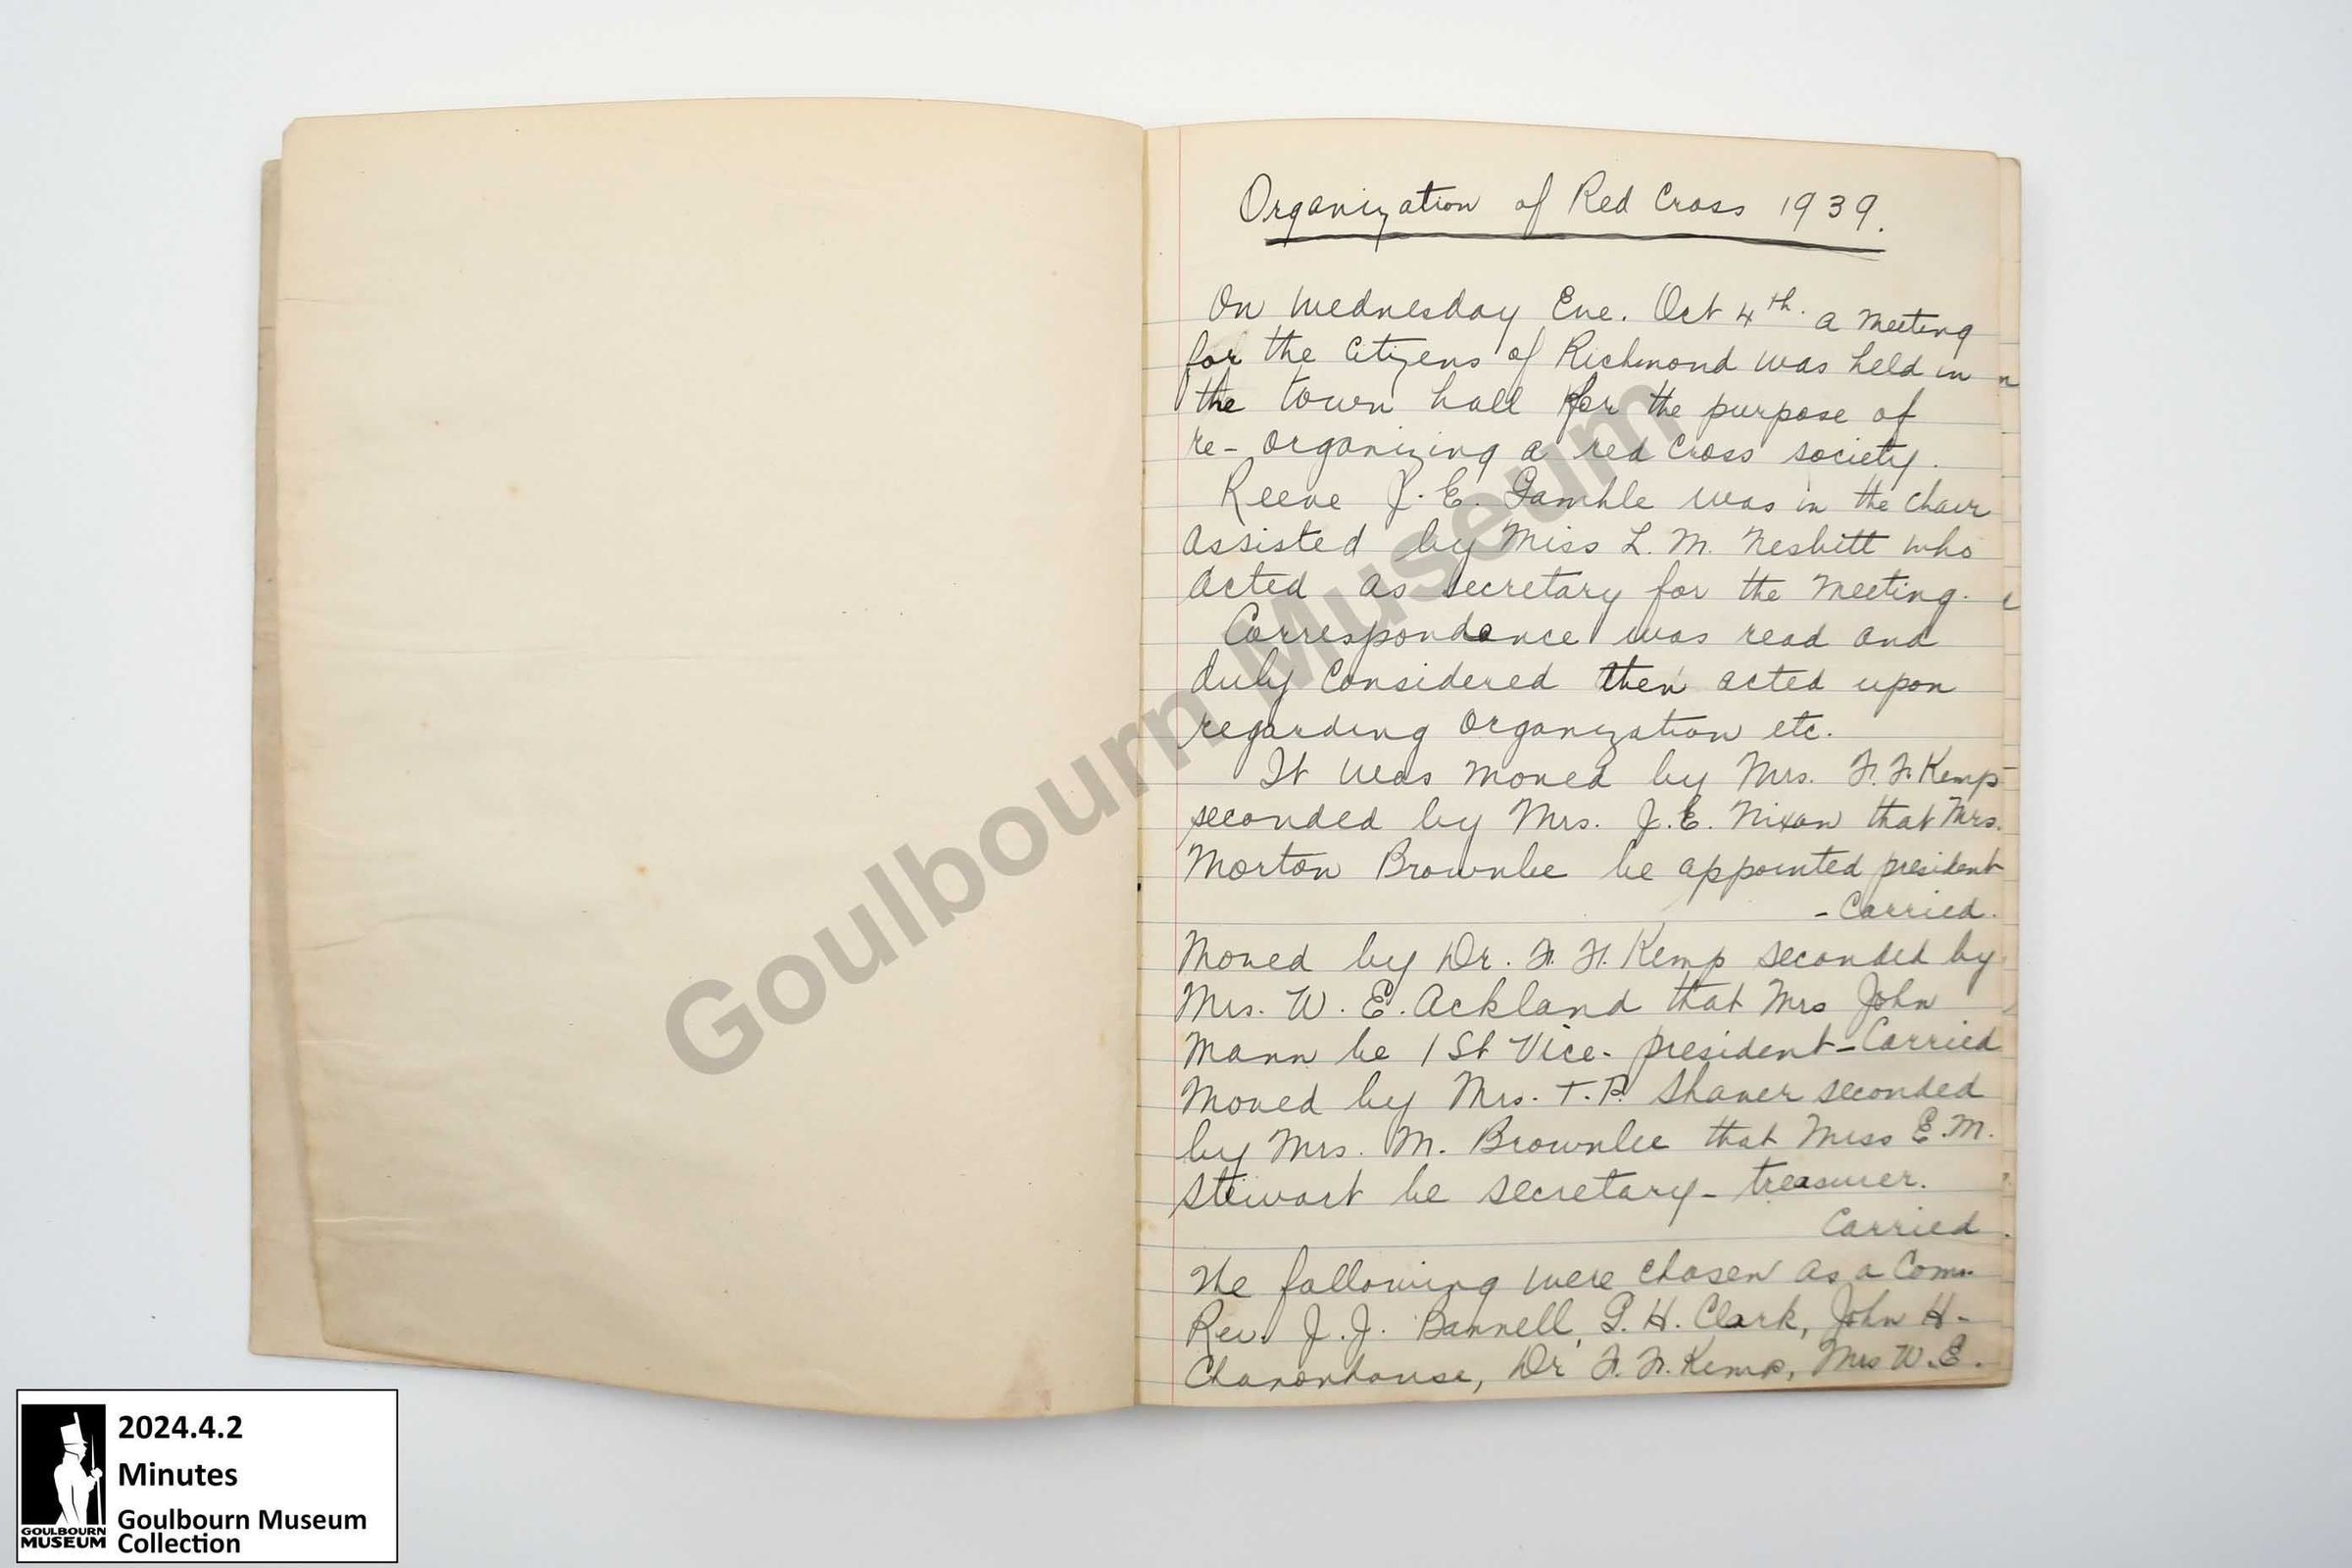 Organization of Red Cross 1939.
On Wednesday Eve. Oct 4th. a meeting
for the citizens of Richmond was held in
the town hall for the purpose of
re-organizing a red cross society.
Reeve J. E. Gamble was in the chair
assisted by Miss L. M. Nesbitt who
acted as secretary for the meeting.
Correspondance was read and
duly considered then acted upon
regarding organization etc.
It was moved by Mrs. F. F. Kemp
seconded by Mrs. J. E. Nixon that Mrs.
Morton Brownlee be appointed president
- Carried.
Moved by Dr. F. F. Kemp seconded by
Mrs. W. E. Ackland that Mrs John
Mann be 1st Vice-president - Carried
Moved by Mrs. T. P. Shaver seconded
by Mrs. M. Brownlee that Miss E. M.
Stewart be secretary-treasurer.
Carried.
The following were chosen as a Com.
Rev. J. J. Bannell, G. H. Clark, John H.
Chanonhouse, Dr F. F. Kemp, Mrs W. E.
Goulbourn Museum
2024.4.2
Minutes
Goulbourn Museum
Collection
GOULBOURN
MUSEUM